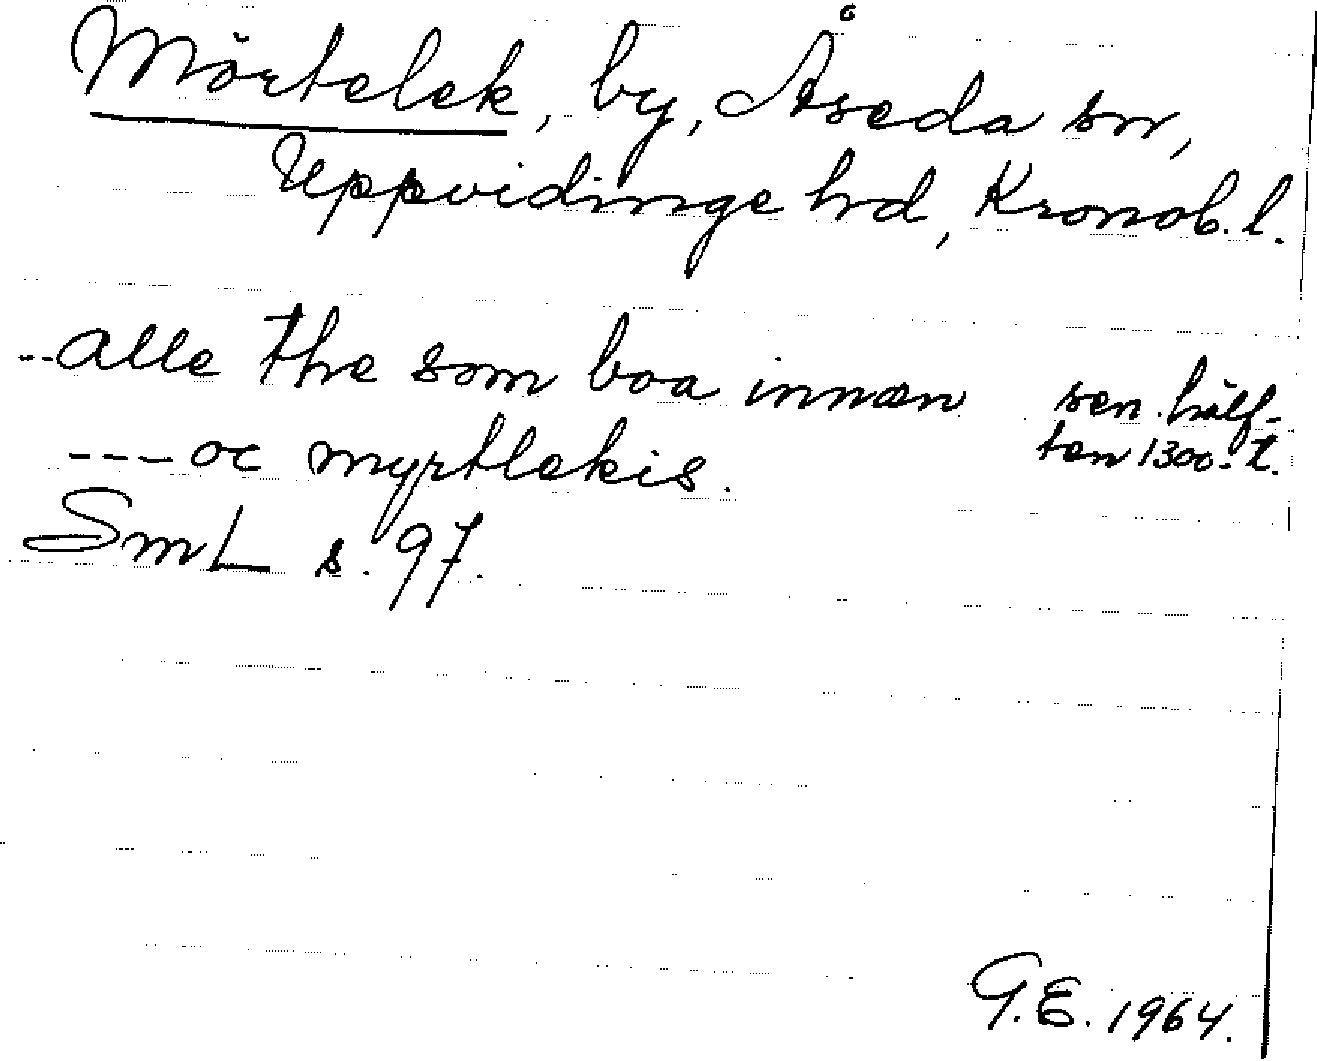 Mörtelek, by, Åseda sn,
Uppvidinge hd, Kronob. l.
--alle the som boa innæn
sen. hälf-
---- oc myrtlekis.
ten 1300-t.
SmL s. 97.
G.E. 1964.